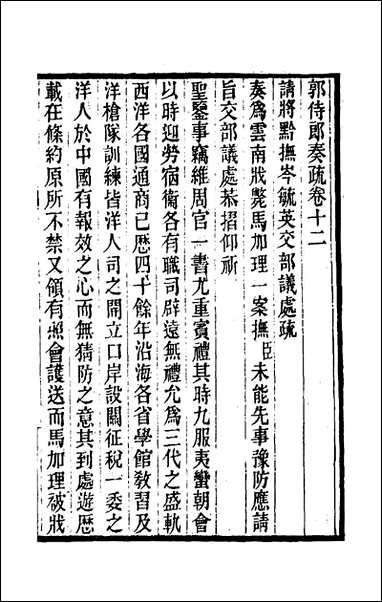 郭侍郎奏疏卷十二
請將黔撫岑毓英交部議處疏
奏爲雲南戕斃馬加理一案撫臣未能先事豫防應請
旨交部議處恭摺仰祈
聖鑒事竊維周官一書尤重賓禮其時九服夷蠻朝會
以時迎勞宿衞各有職司辟遠無禮允爲三代之盛軌
西洋各國通商已歷四十餘年沿海各省學館敎習及
洋槍隊訓練皆洋人司之開立口岸設關征稅一委之
洋人於中國有報效之心而無猜防之意其到處遊歷
載在條約原所不禁又領有照會護送而馬加理被戕